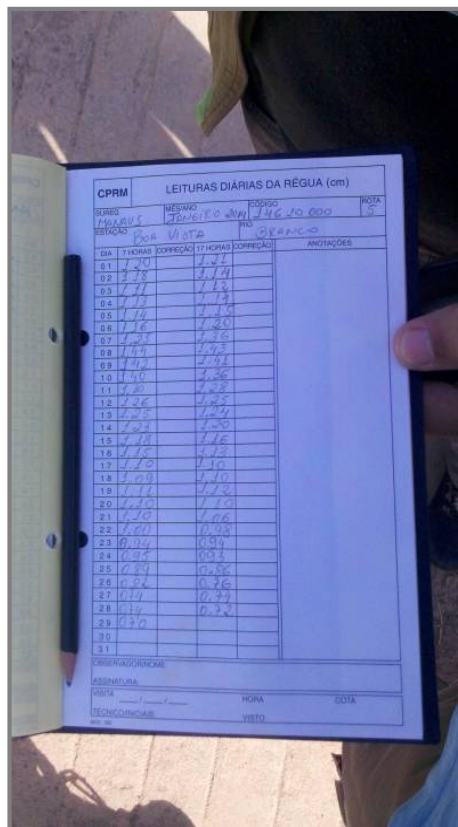 CPRM LEITURAS DIÁRIAS DA RÉGUA (cm)
SUREG MÊS/ANO CÓDIGO ROTA
MANAUS JANEIRO 14620000 5
ESTAÇÃO BOA VISTA RIO BRANCO
DIA 7 HORAS CORREÇÃO 17 HORAS CORREÇÃO ANOTAÇÕES
01 1.20 1.21
02 1.18 1.14
03 1.11 1.12
04 1.13 1.14
05 1.14 1.15
06 1.16 1.20
07 1.25 1.36
08 1.44 1.43
09 1.42 1.41
10 1.40 1.36
11 1.30 1.28
12 1.26 1.25
13 1.25 1.24
14 1.23 1.20
15 1.18 1.16
16 1.15 1.13
17 1.10 1.10
18 1.09 1.10
19 1.11 1.12
20 1.10 1.10
21 1.10 1.06
22 1.00 0.98
23 0.94 0.94
24 0.95 093
25 0.89 0.86
26 0.82 0.76
27 074
28 0.74 0.72
29 070
30
31
OBSERVADOR/NOME:
ASSINATURA:
VISITA ____/____/____ HORA COTA
TÉCNICO/INICIAIS: VISTO